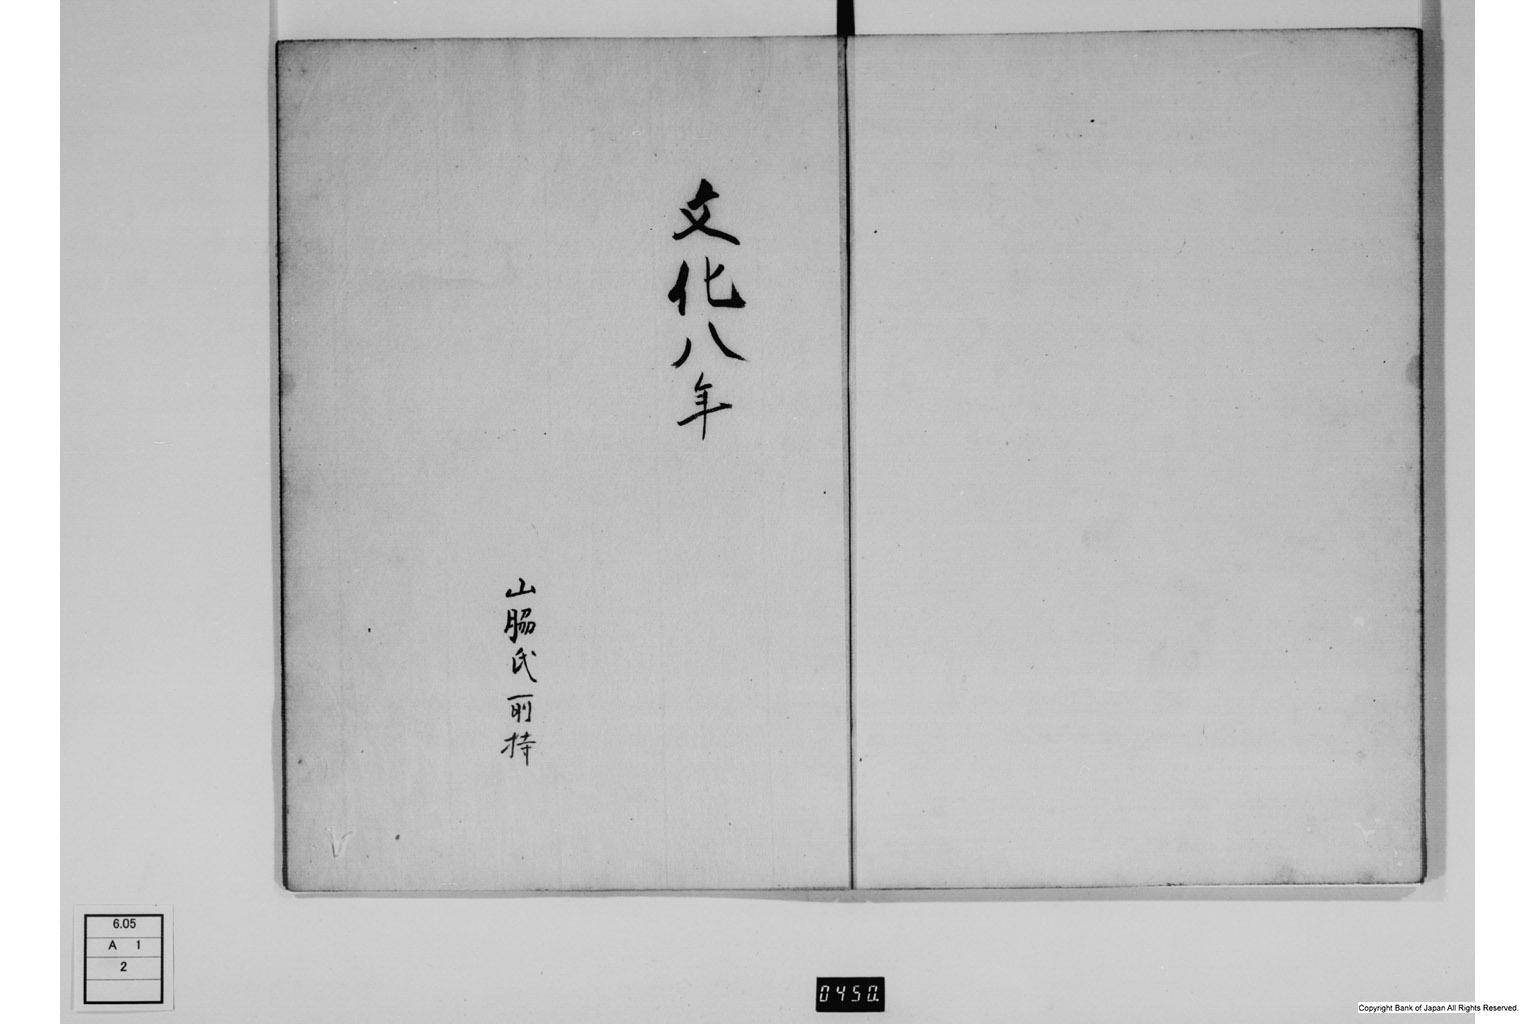 文化八年
山脇氏所持
6.05
A 1
2
0450
Copyright Bank of Japan All Rights Reserved.